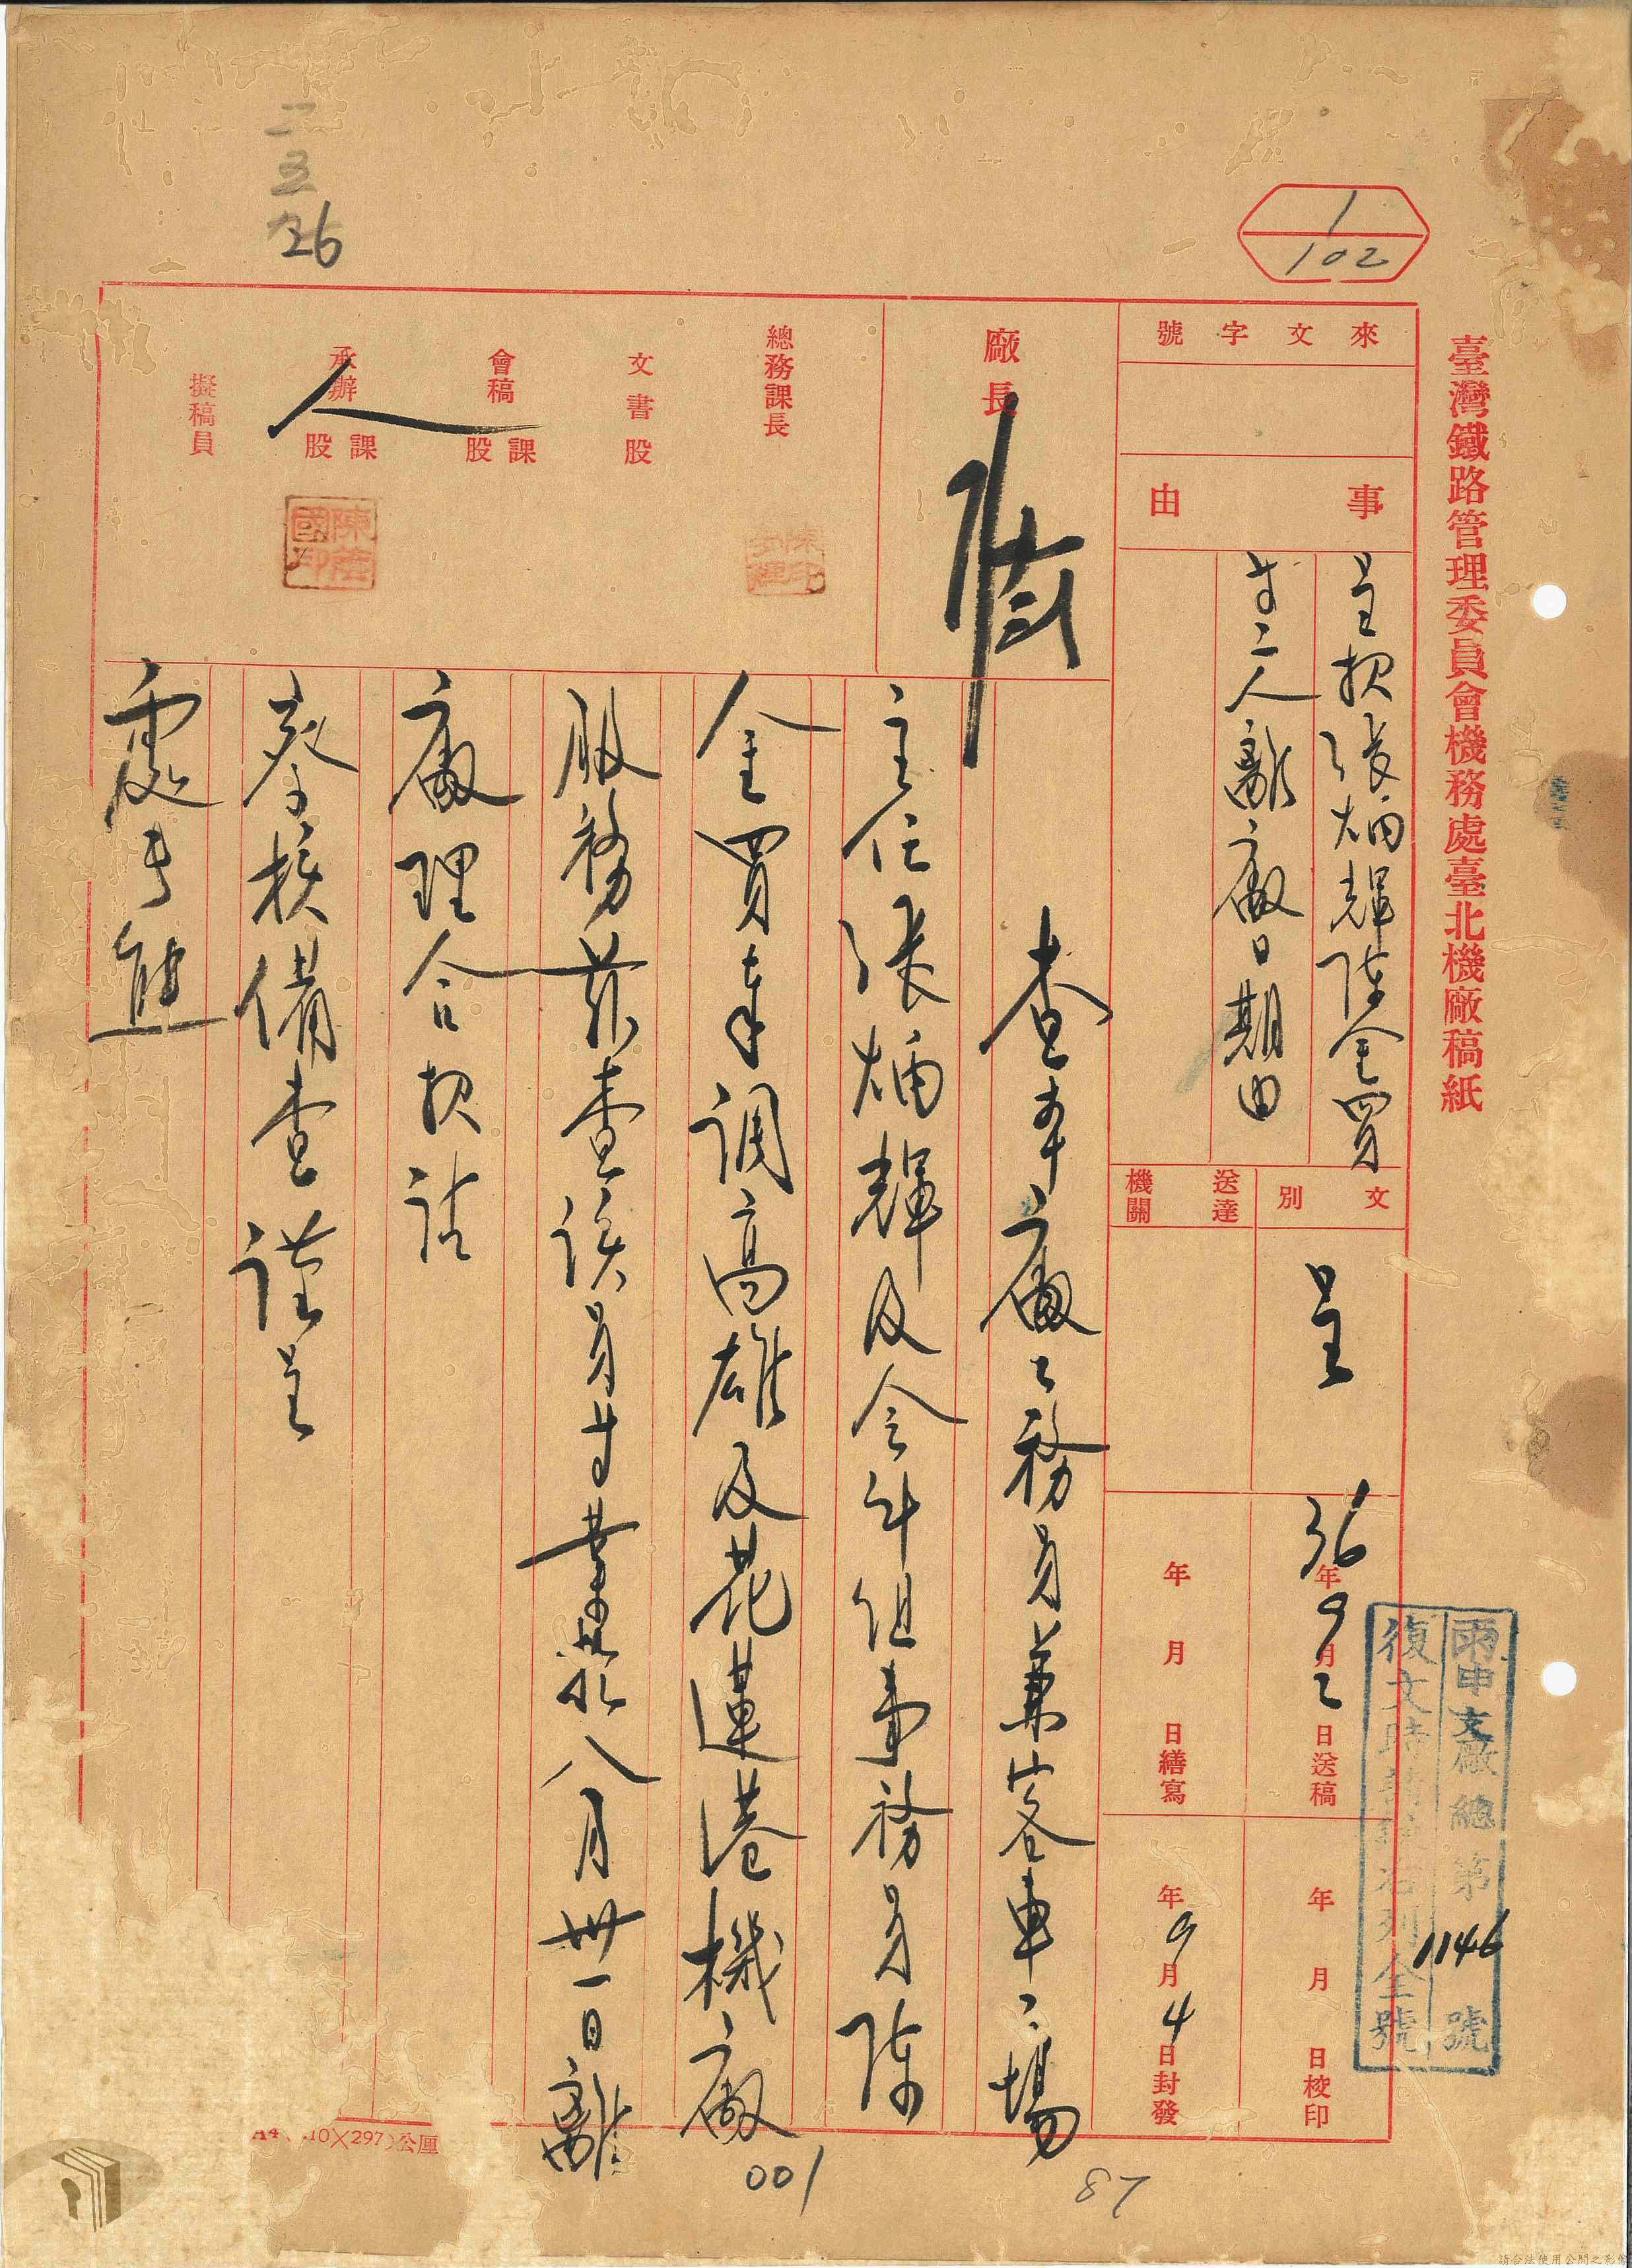 臺灣鐵路管理委員會機務處臺北機廠稿紙
1
102
來文字號
事由
呈報張炳輝陳金買
等二人離廠日期由
文別
呈
送達機關
36年9月2日送稿
年月日繕寫
年月日校印
年9月4日封發
雨申文廠總第1146號
復文時請列全號
廠長
總務課長
文書股
會稿
課
股
承辦
課
股
擬稿員
查本廠工務員兼客車工場
主任張炳輝及會計組事務員陳
金買奉調高雄及花蓮港機廠
服務茲查該員等業於八月卅一日離
廠理合報請
察核備查謹呈
處長
26
A4
297
公厘
001
87